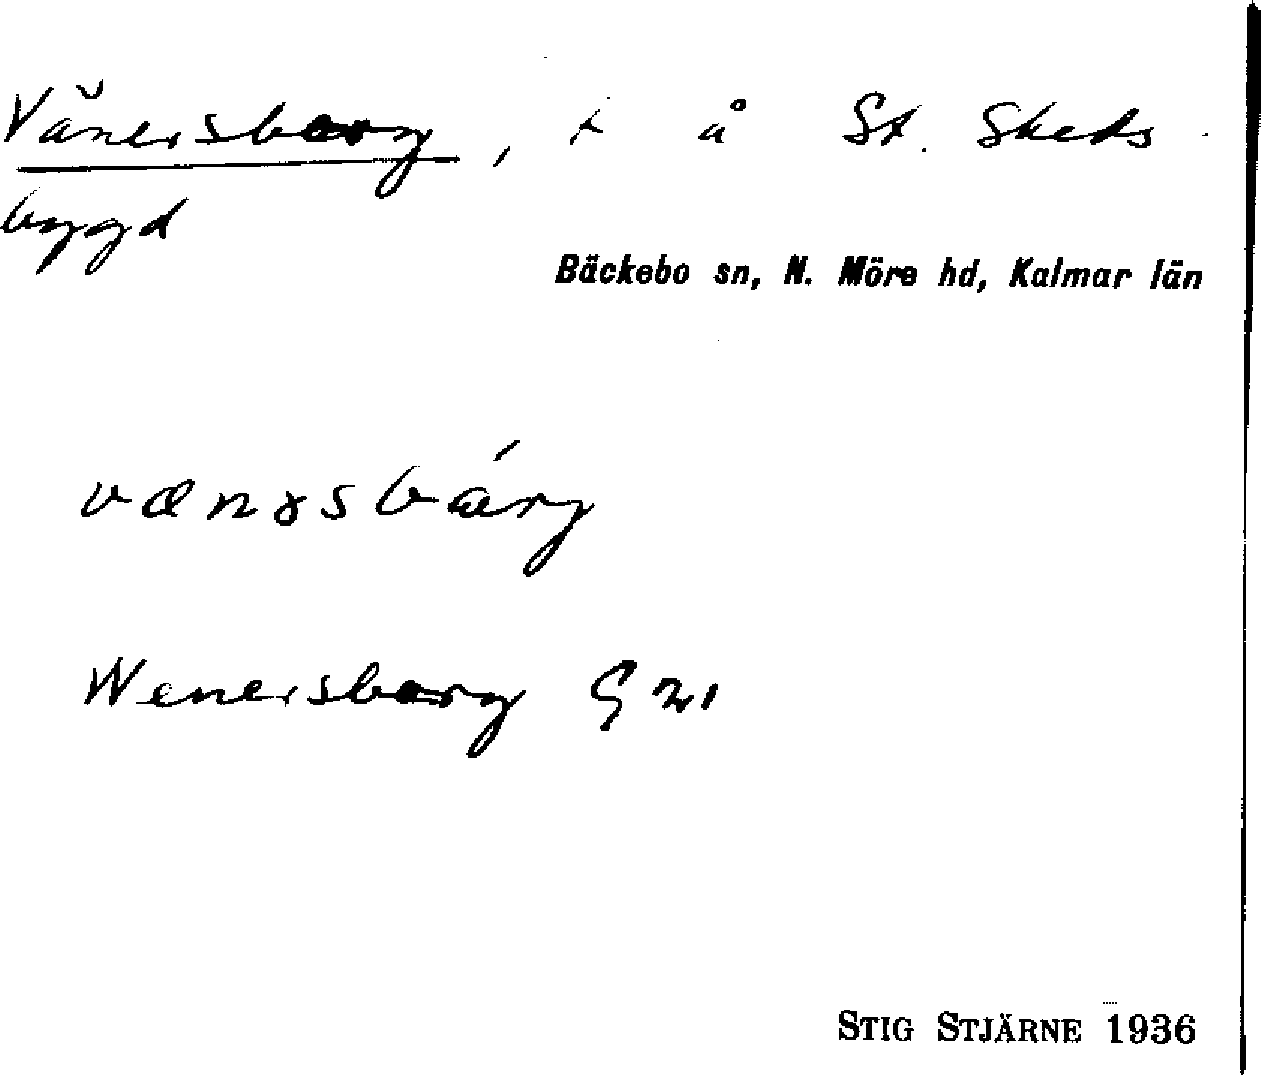 Vänersborg, t å St. Skeds-
bygd
Bäckebo sn, N. Möre hd, Kalmar län
vænərsbárj
Wenersborg G 21
STIG STJÄRNE 1936